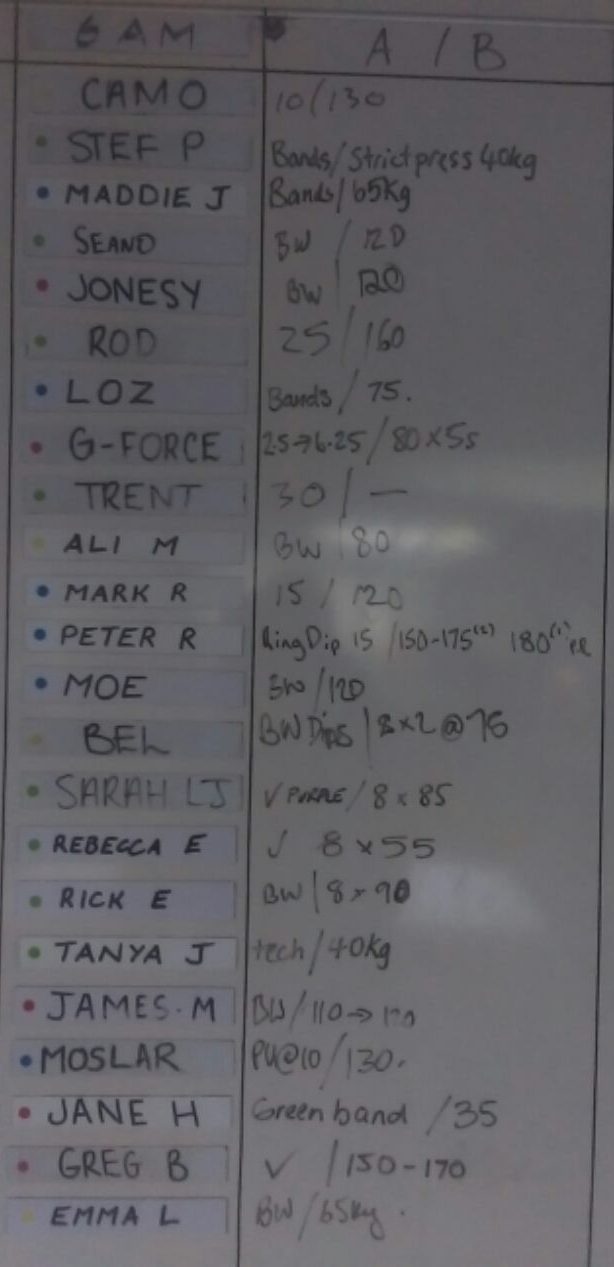 6 AM A / B
CAMO 10/130
STEF P Bands/Strict press 40kg
MADDIE J Bands/65kg
SEANO BW / 120
JONESY BW / 120
ROD 25/160
LOZ Bands / 75.
G-FORCE 2.5→6.25/80x5s
TRENT 30/—
ALI M BW/80
MARK R 15/120
PETER R Ring Dip 15 /150-175⁽²⁾ 180⁽¹⁾
MOE BW/120
BEL BW Dips/8x2@75
SARAH LJ √ PURPLE/8x85
REBECCA E √ 8x55
RICK E BW/8x90
TANYA J tech/40kg
JAMES.M BW/110→
MOSLAR PU@10/130.
JANE H Green band /35
GREG B √ /150-170
EMMA L BW/65kg.